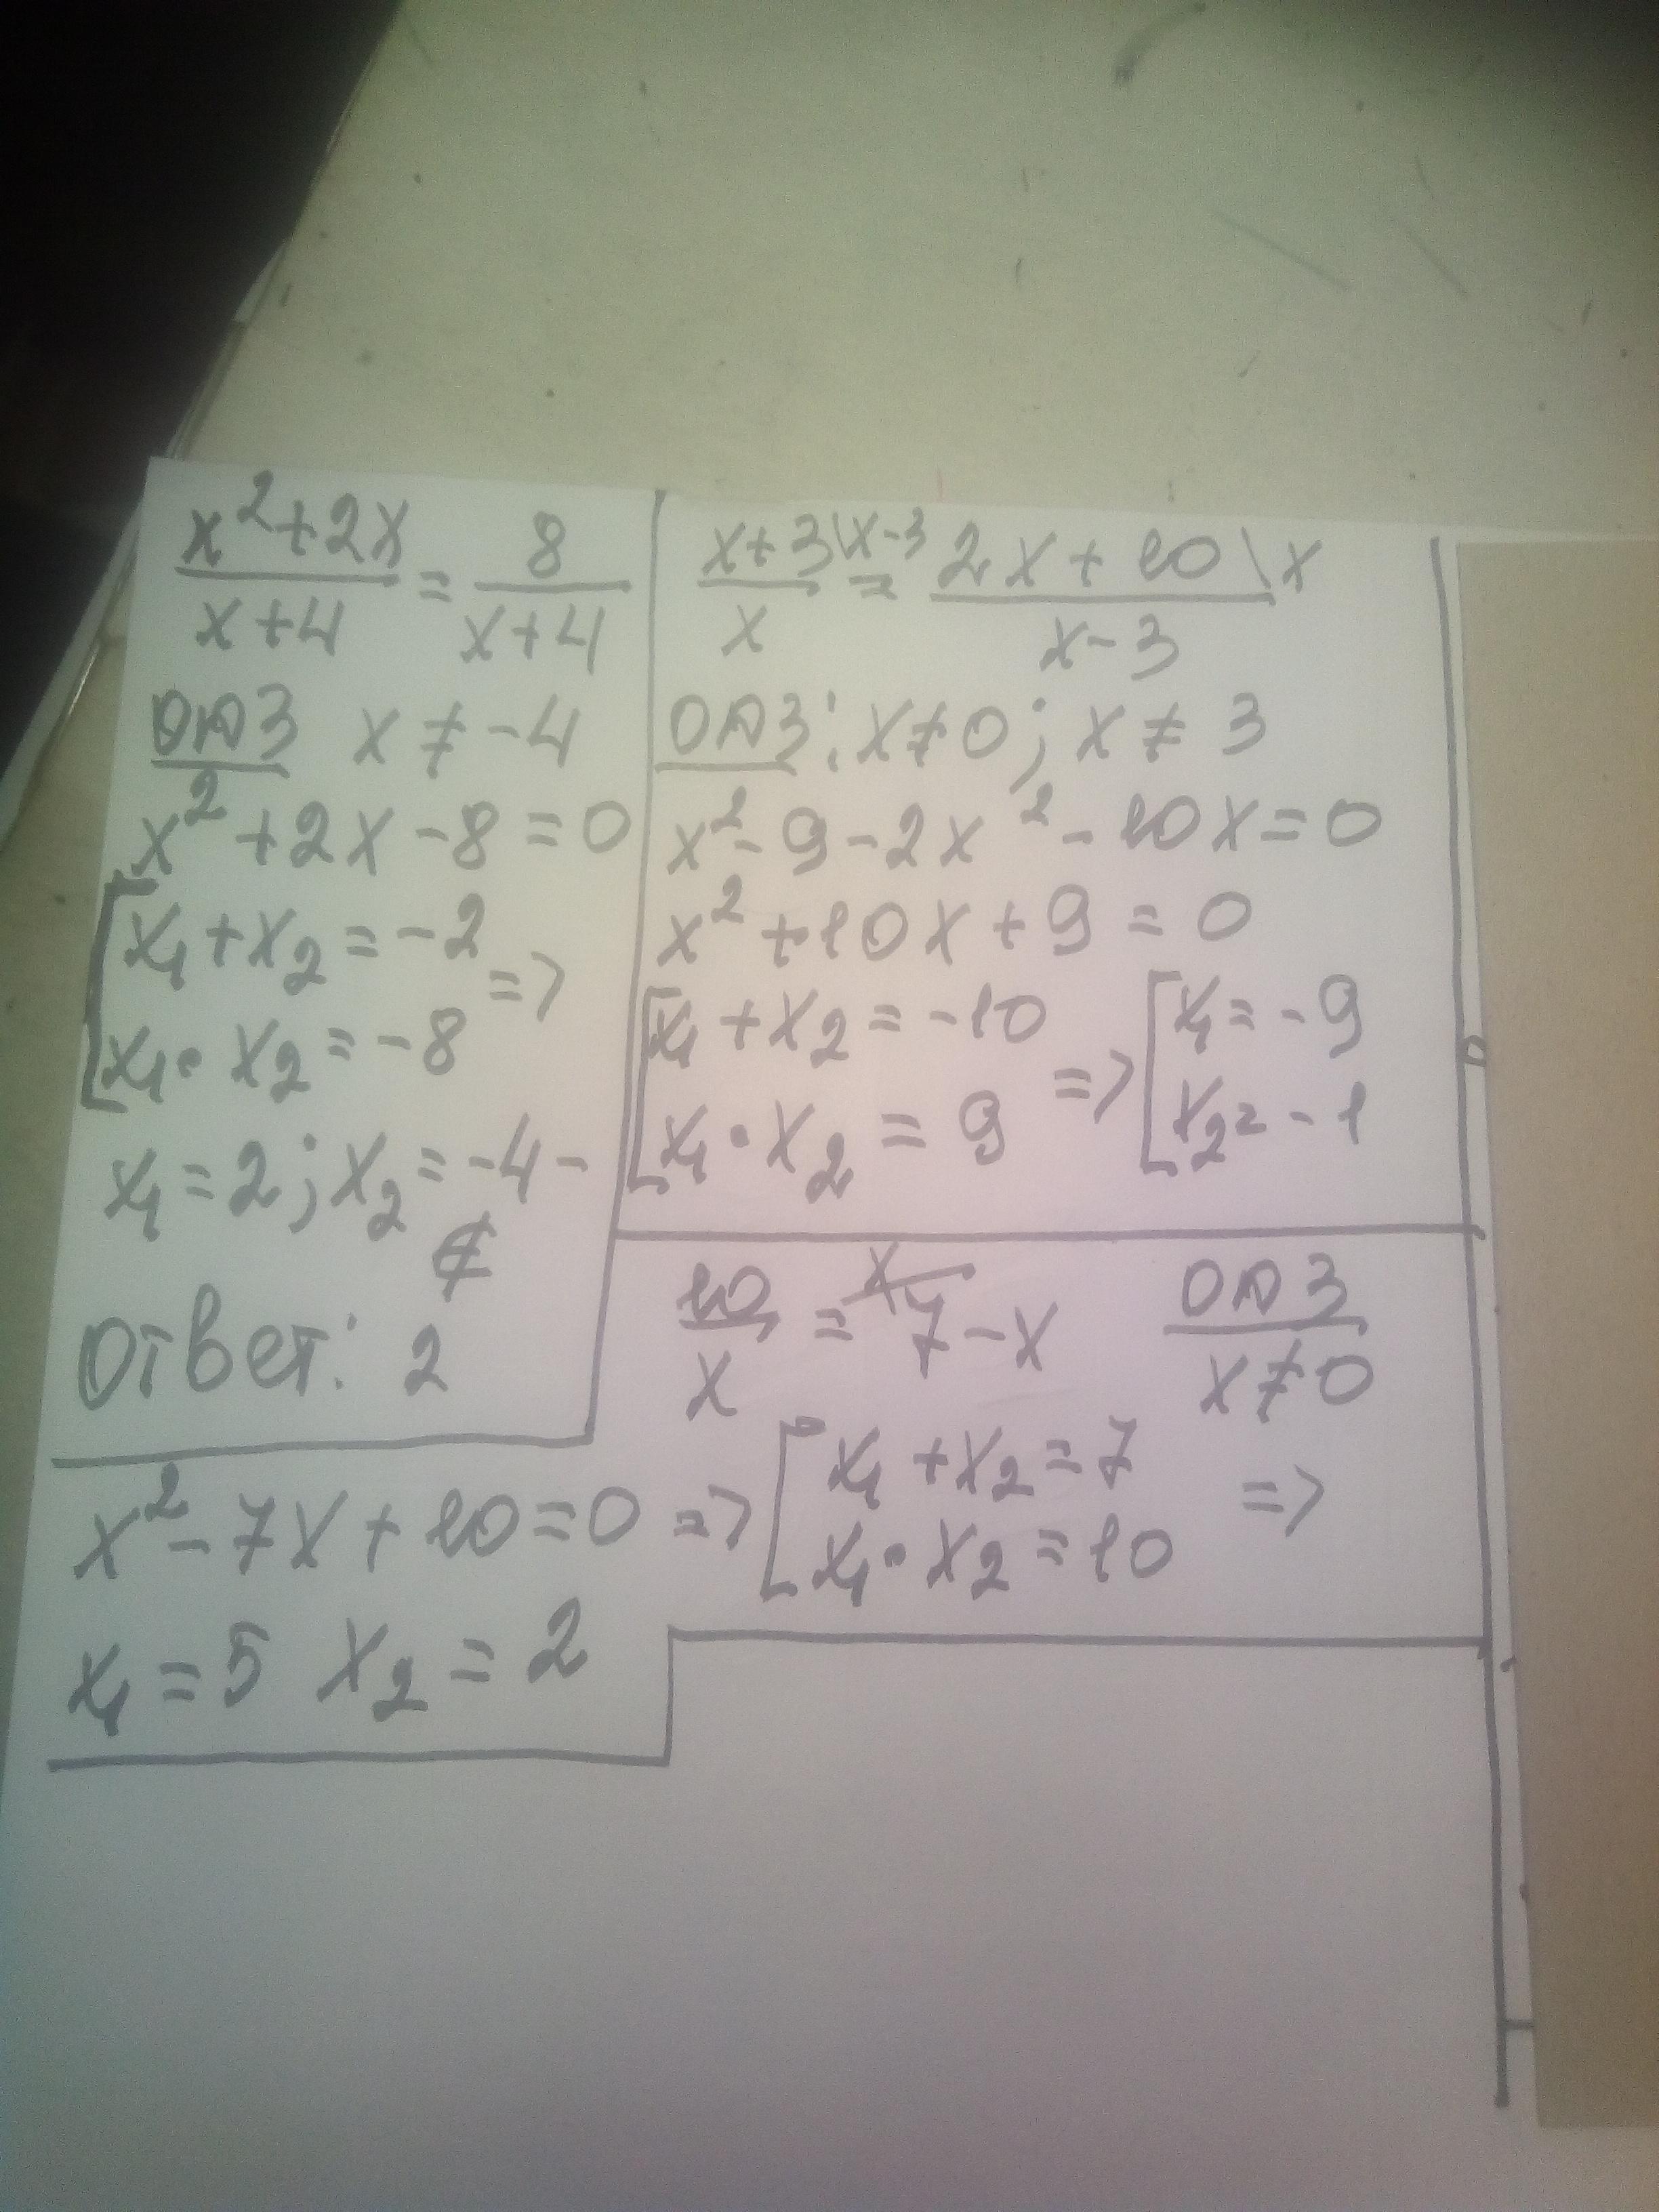 x²+2x / x+4 = 8 / x+4
ОДЗ x ≠ -4
x² + 2x - 8 = 0
[x₁ + x₂ = -2
x₁ · x₂ = -8 =>
x₁ = 2; x₂ = -4 - ∉
Ответ: 2
x+3\x-3 / x = 2x + 10\x / x-3
ОДЗ: x≠0; x ≠ 3
x² - 9 - 2x² - 10x = 0
x² + 10x + 9 = 0
[x₁ + x₂ = -10
x₁ · x₂ = 9 => [x₁ = -9
x₂ = -1
10 / x = 7 - x\x ОДЗ
x≠0
x² - 7x + 10 = 0 => [x₁ + x₂ = 7
x₁ · x₂ = 10 =>
x₁ = 5 x₂ = 2